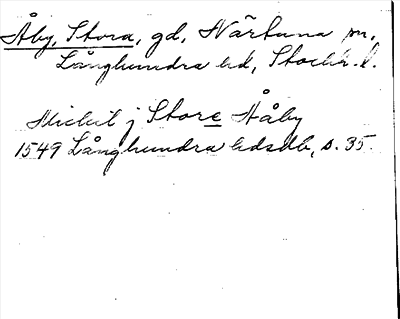 Åby, Stora, gd, Närtuna sn,
Långhundra hd, Stockh. l.
Michil j Store Håby
1549 Långhundra hdsdb, s. 35.